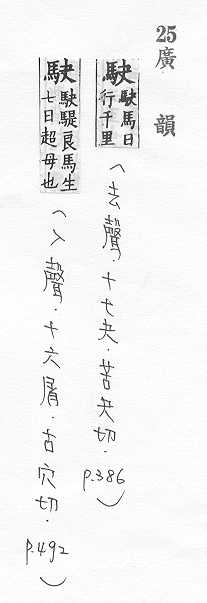 25廣韻
駃 駃馬日行千里(去聲.十七夬.苦夬切.p.386)
駃 駃騠良馬生七日超母也(入聲.十六屑.古穴切.p.492)